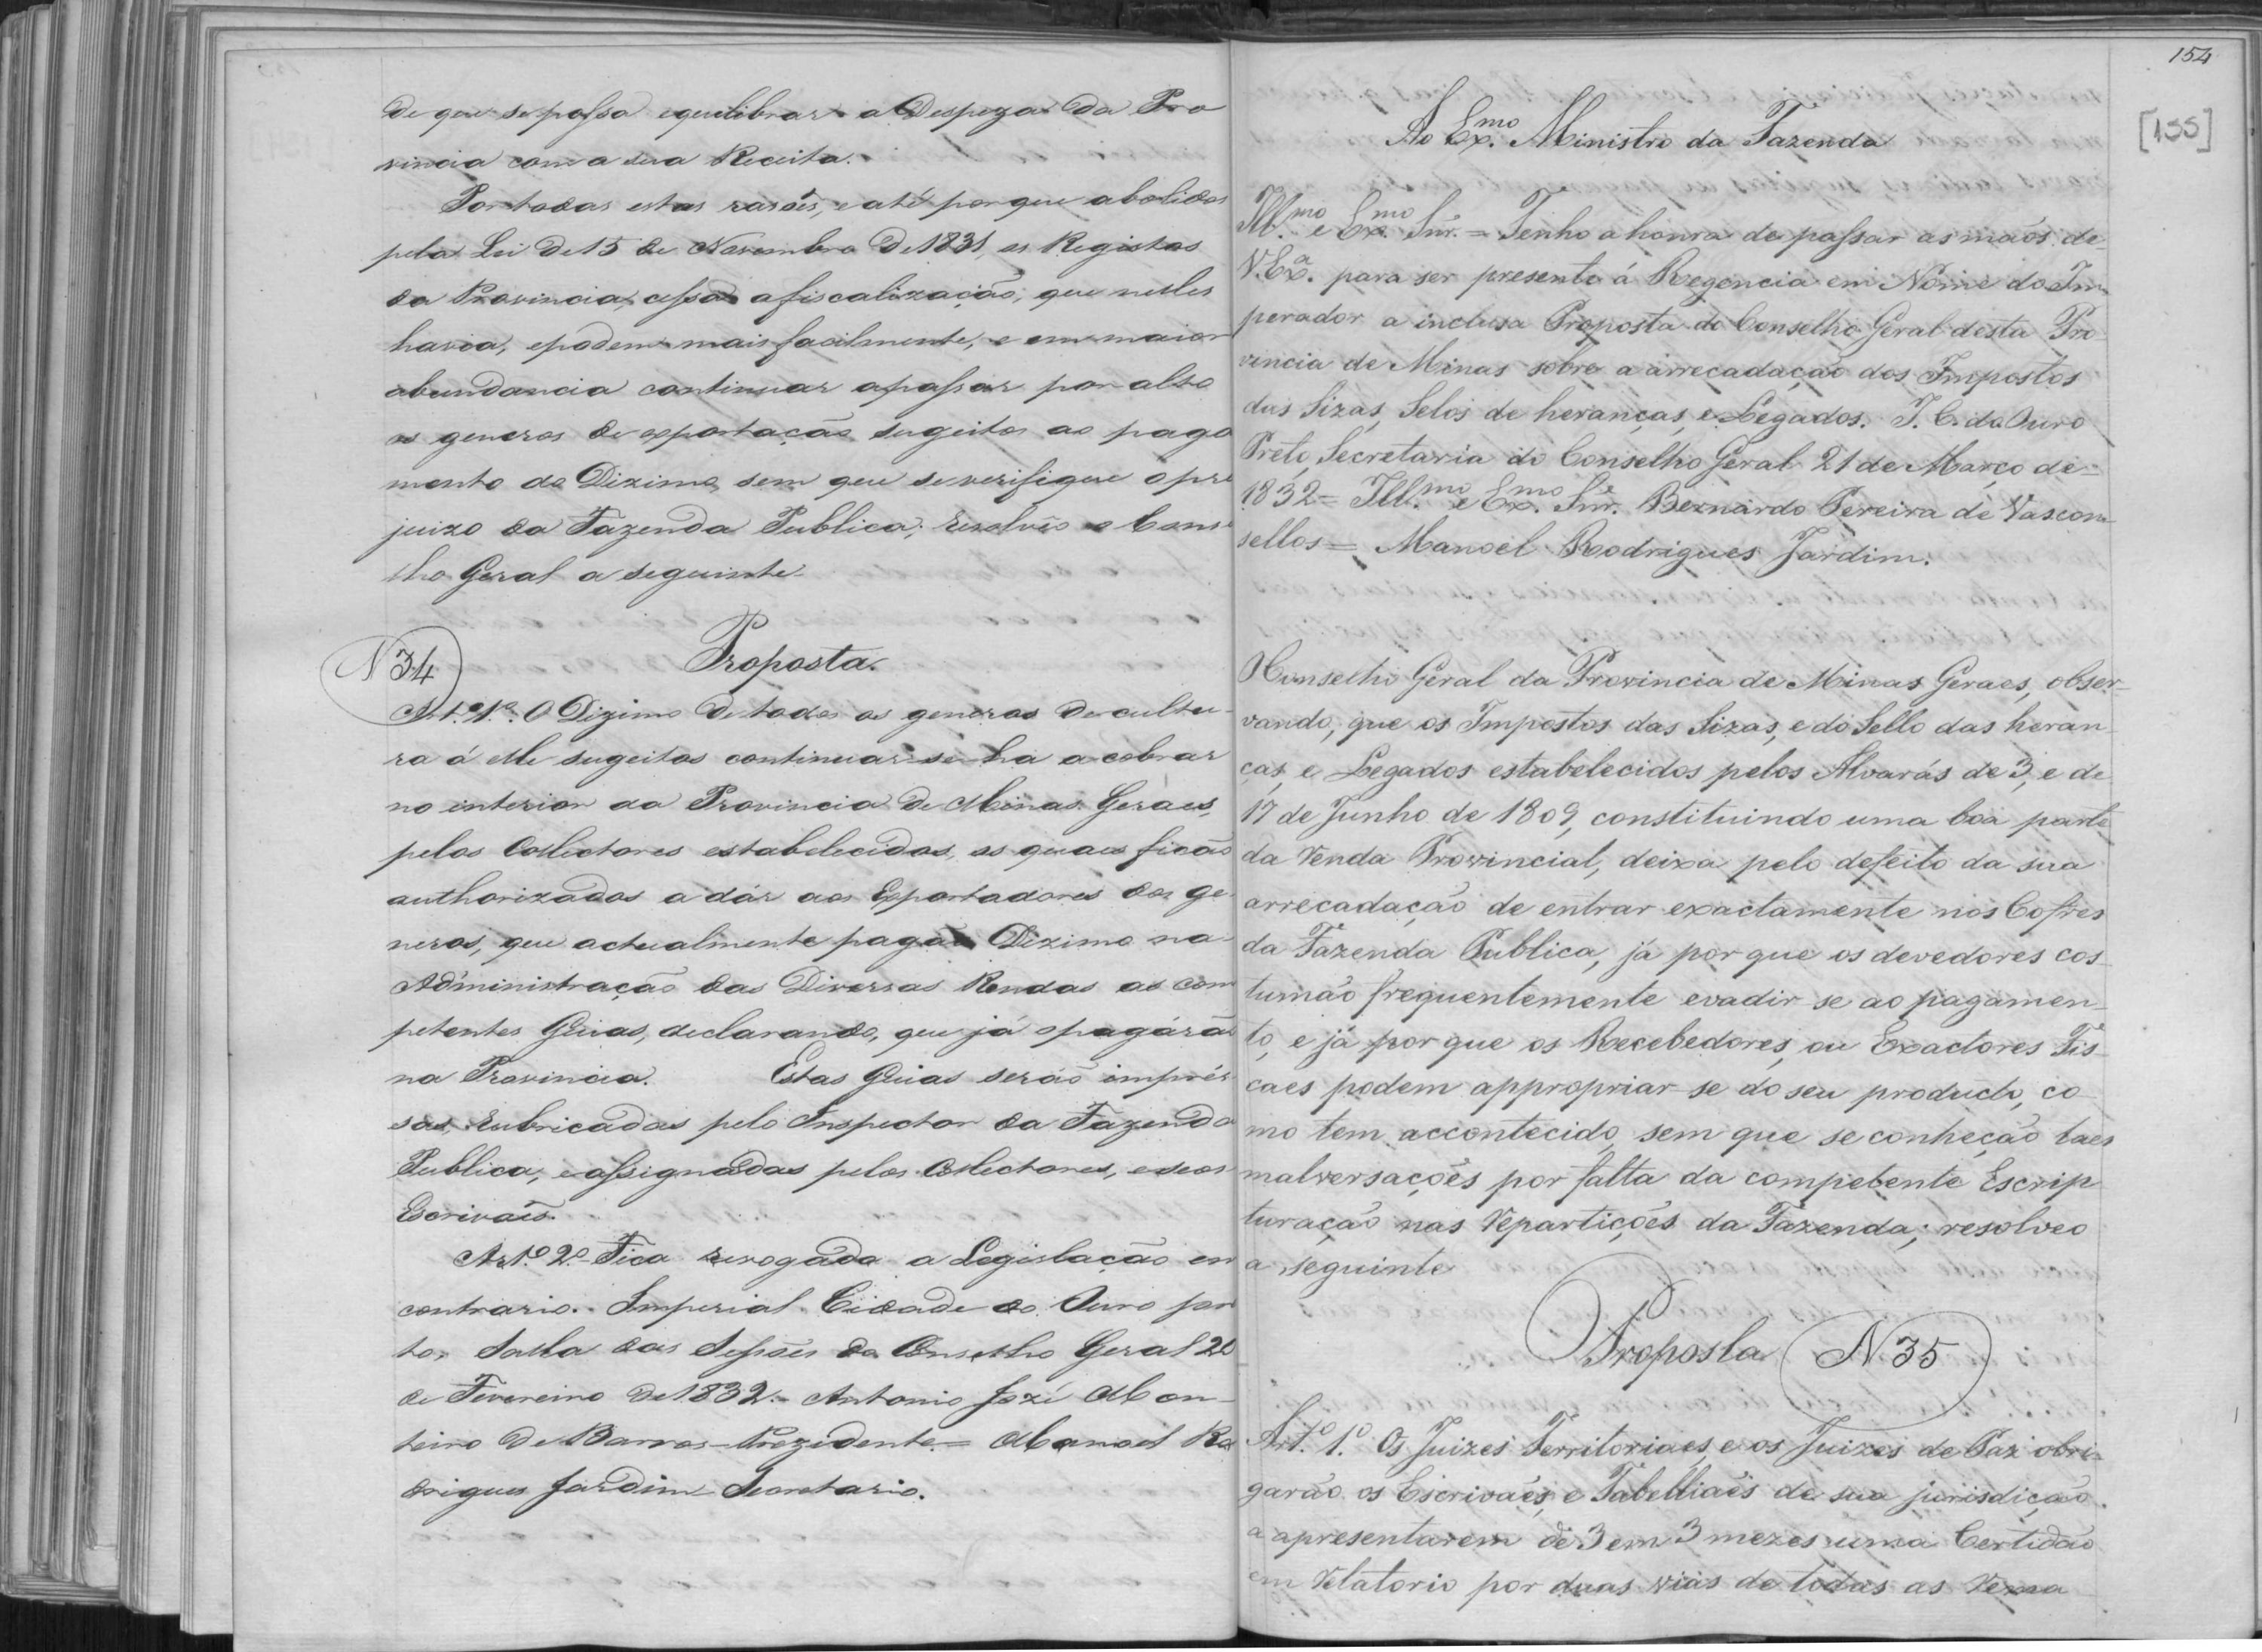 de que se possa equilibrar a Despeza da Pro
vincia com a sua Receita.
Por todas estas rasoẽs, e até porque abolidos
pela Lei de 15 de Novembro de 1831, os Registos
da Provincia, cessa a fiscalização, que nelles
havia, e podem mais facilmente, e em maior
abundancia continuar a passar por alto
os generos de exportação sugeitos ao paga
mento do Dizimo, sem que se verifique o pre
juizo da Fazenda Publica; resolvêo o Conse
lho Geral a seguinte
Proposta.
N 34
Art.º 1.º O Dizimo de todos os generos de cultu-
ra á elle sugeitos continuar-se-ha a cobrar
no interior da Provincia de Minas Geraes,
pelos Collectores estabelecidos, os quaes ficão
authorizados a dár aos Exportadores dos ge-
neros, que actualmente pagão Dizimo na
Administração das Diversas Rendas as com
petentes Guias, declarando, que já o pagárão
na Provincia. Estas Guias serão imprés
sas, rubricadas pelo Inspector da Fazenda
Publica, e assignadas pelos Collectores, e seos
Escrivaẽs.
Art.º 2.º Fica revogada a Legislação em
contrario. Imperial Cidade do Ouro pre
to, Salla das Sessoẽs do Conselho Geral 20
de Fevereiro de 1832. Antonio Jozé Mon-
teiro de Barros Prezidente = Manoel Ro
drigues Jardim Secretario.
154
[155]
Ao Ex.mo Ministro da Fazenda
Ill.mo e Ex.mo Snr. = Tenho a honra de passar as maõs de
V. Ex.a para ser presente á Regencia em Nome do Im
perador a inclusa Proposta do Conselho Geral desta Pro
vincia de Minas sobre a arrecadação dos Impostos
das Sizas, Selos de heranças, e Legados. I. C. do Ouro
Preto, Secretaria do Conselho Geral 21 de Março de
1832 = Ill.mo e Ex.mo Snr. Bernardo Pereira de Vascon
sellos = Manoel Rodrigues Jardim.
O Conselho Geral da Provincia de Minas Geraes, obser-
vando, que os Impostos das Sizas, e do Sello das heran
ças, e Legados estabelecidos pelos Alvarás de 3, e de
17 de Junho de 1809, constituindo uma boa parte
da Renda Provincial, deixa pelo defeito da sua
arrecadação de entrar exactamente nos Cofres
da Fazenda Publica, já por que os devedores cos-
tumão frequentemente evadir se ao pagamen-
to, e já por que os Recebedores, ou Exactores Fis-
caes podem appropriar-se do seu producto, co-
mo tem accontecido, sem que se conheção taes
malversaçoẽs por falta da competente Escrip
turação nas Repartiçoẽs da Fazenda; resolveo
a seguinte
Proposta N 35
Art.º 1.º Os Juizes Territoriaes, e os Juizes de Paz obri-
garão os Escrivaẽs, e Tabelliaẽs de sua jurisdição
a apresentarem de 3 em 3 mezes uma Certidão
em Relatorio por duas vias de todas as Rema